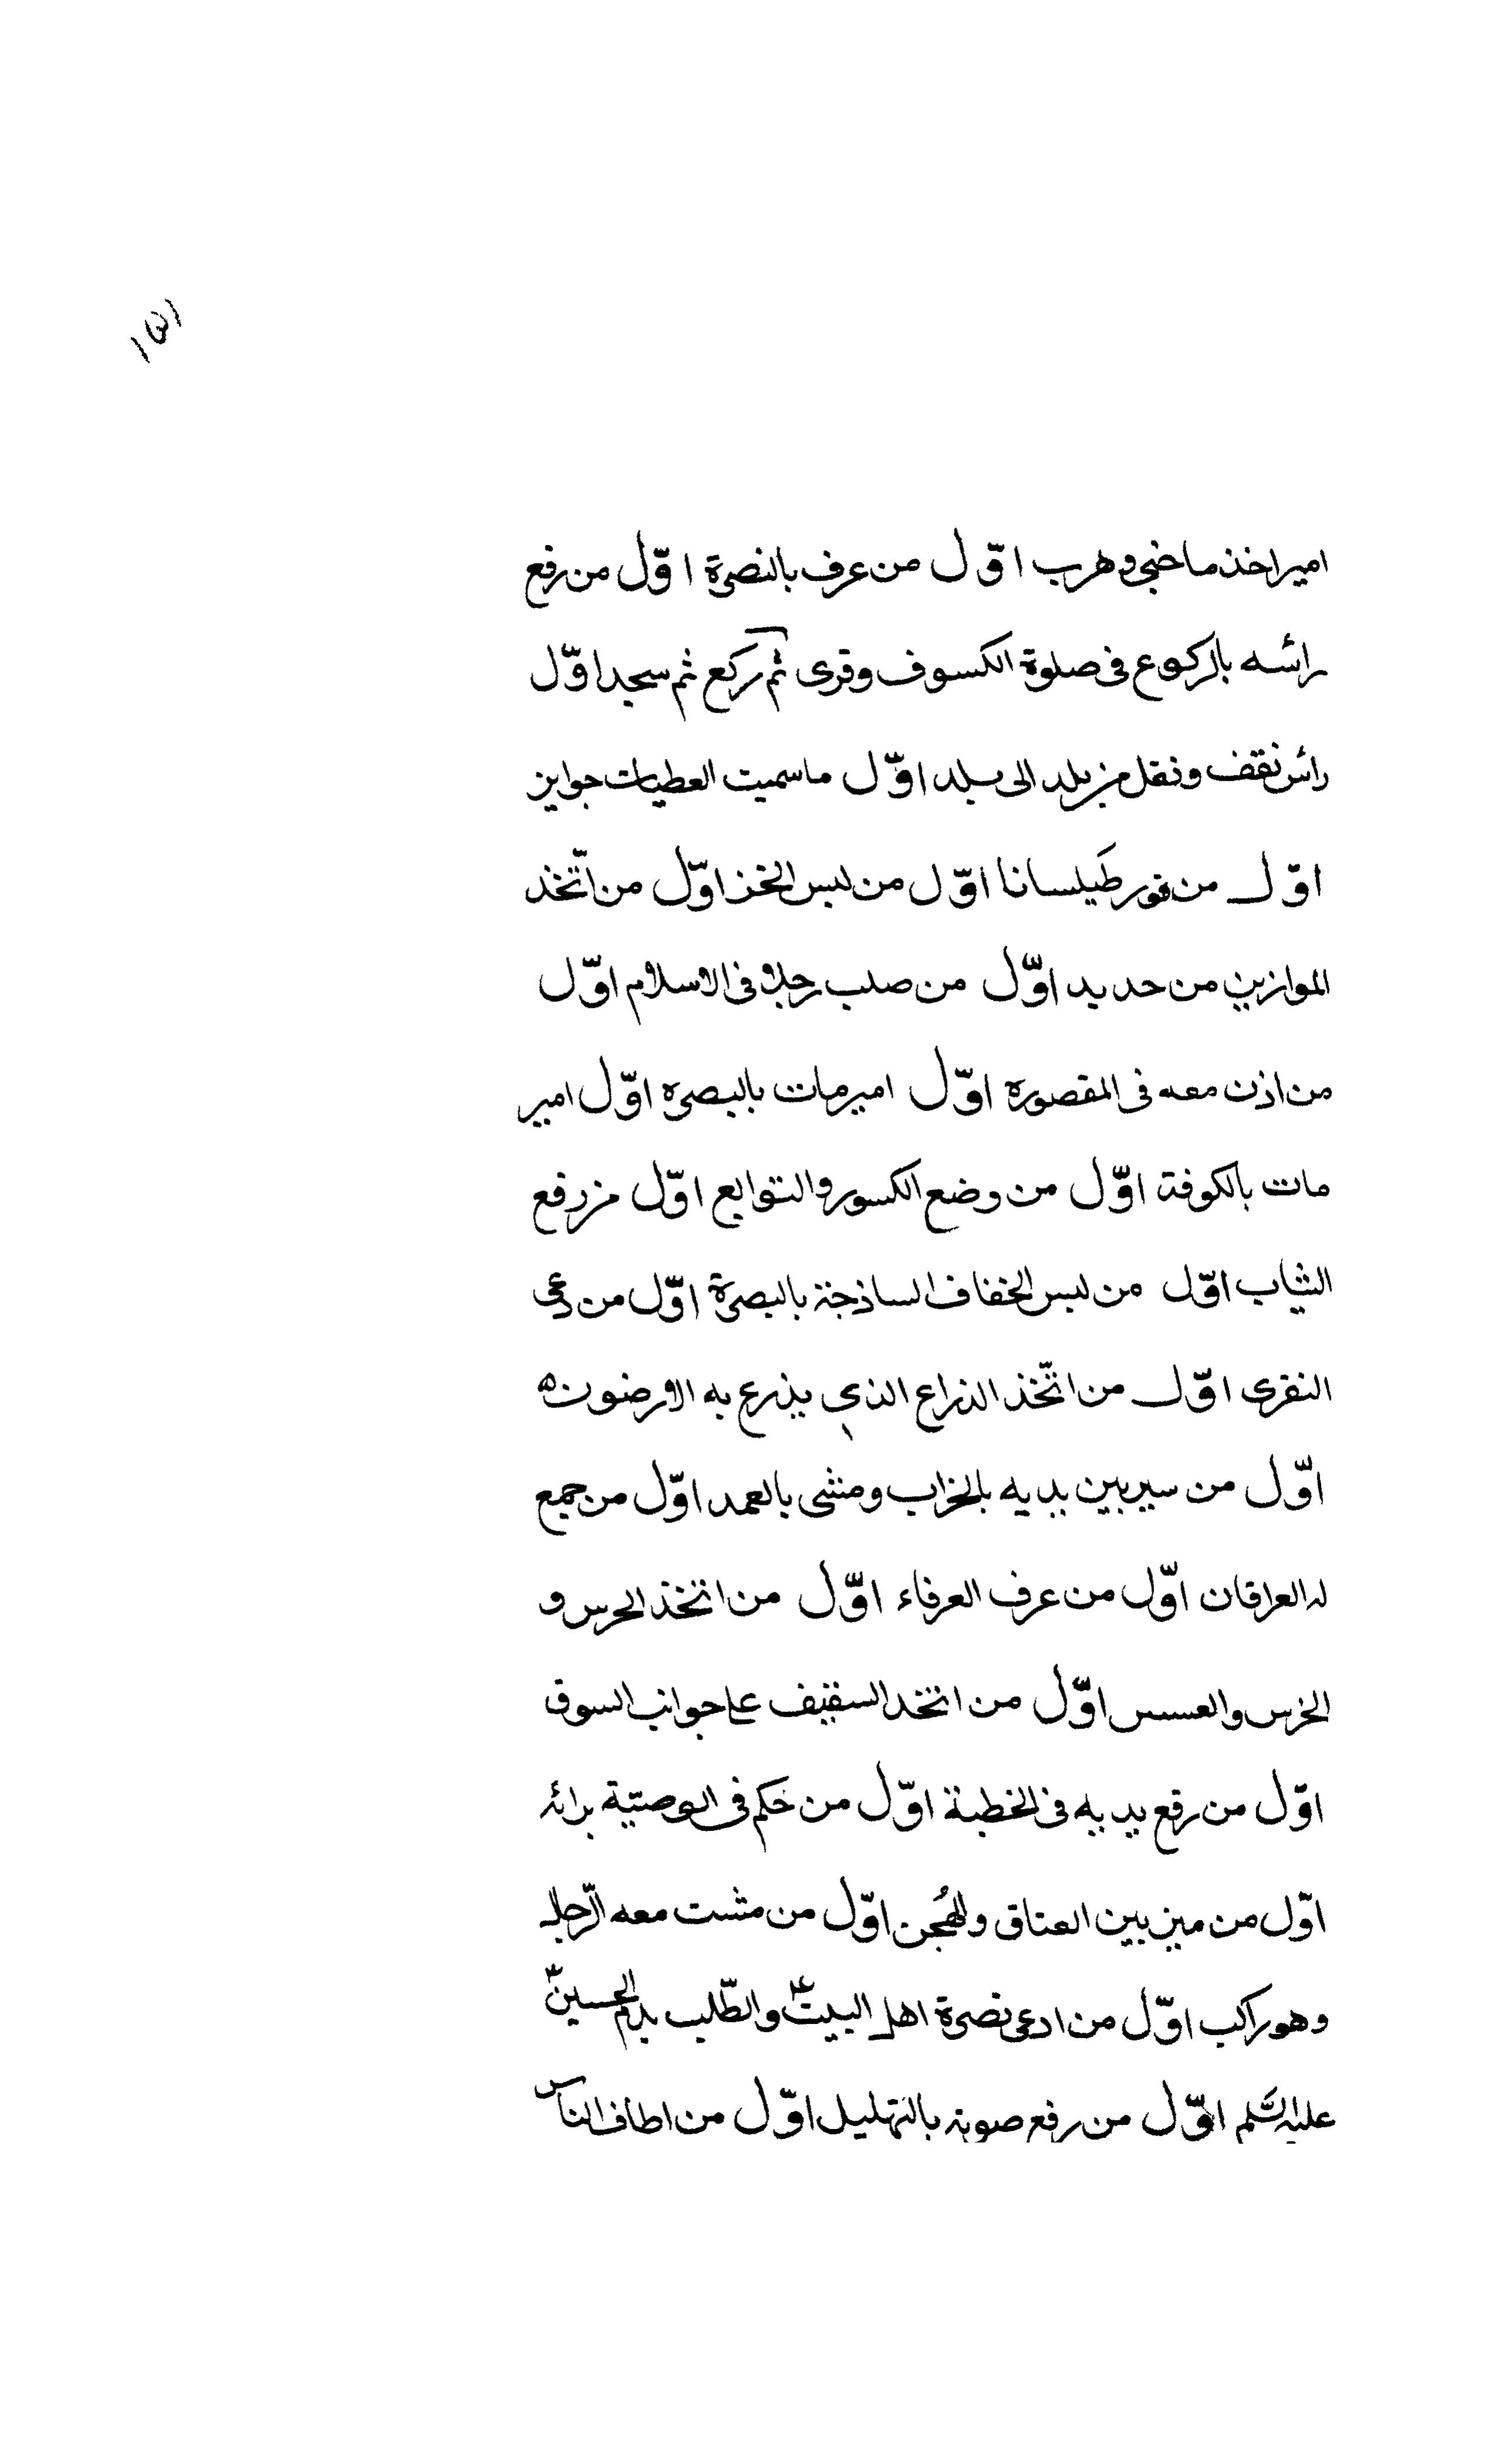 ١٥١
امير اخذ ماخبى وهرب اوّل من عرف بالنصرة اوّل من رفع
رائسه بالركوع فى صلوة الكسوف وقرى ثم ركع ثم سجد اوّل
رائس نقف ونقل من بلد الى بلد اوّل ما سميت العطيات جوايز
اوّل من قور طيلسانا اوّل من لبس الخز اوّل من اتّخذ
الموازين من حديد اوّل من صلب رجلا فى الاسلام اوّل
من اذن معه فى المقصوره اوّل امير مات بالبصره اوّل امير
مات بالكوفة اوّل من وضع الكسور والتوابع اوّل من رفع
الثياب اوّل من لبس الخفاف الساذجة بالبصرة اوّل من دعى
النقرى اوّل من اتّخذ الذراع الذي يذرع به الارضون ه
اوّل من سير بين يديه بالخراب ومشى بالعمد اوّل من جمع
له العراقان اوّل من عرف العرفاء اوّل من اتخذ الحرس و
الخرس والعسس اوّل من اتخد السقيف على جوانب السوق
اوّل من رفع يديه فى الخطبة اوّل من حكم فى الوصيّة برائه
اوّل من ميز بين العتاق والهُجن اوّل من مشت معه الرّجال
وهو راكب اوّل من ادعى نصرة اهل البيت ع والطّلب بدم الحسين
عليه السّلم اوّل من رفع صوته بالتهليل اوّل من اطاف الناس